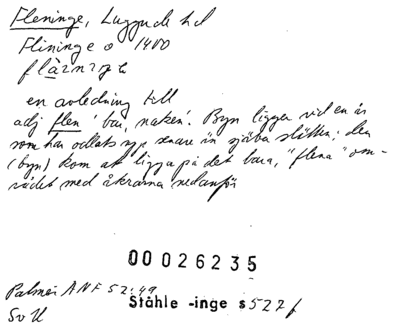 Fleninge, Luggude hd
Flininge o 1400
en avledning till
adj flen 'bar, naken'. Byn ligger vid en ås
som har odlats upp senare än själva slätten; den
(byn) kom att ligga på det bara, "flena" om-
rådet med åkrarna nedanför
00026235
Palmér ANF 52:49 Ståhle -inge s 527 f
SvU